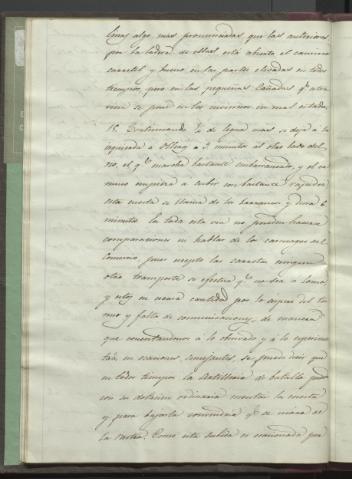 lomas algo mas pronunciadas que las anteriores
por la ladera de ellas está abierto el camino
carretil y bueno en las partes elevadas en todo
tiempo, pero en las pequeñas Cañadas qe atra
viesa se pone en los inviernos en mal estado.
15. Continuando ½ de legua mas se deja á la
izquierda á 3 minutos al otro lado del
rio, el qe marcha bastante y el ca
mino empieza á subir con bastante rapidez
esta cuesta se llama de los y dura 6
minutos la toda esta via no pueden hacerse
comparaciones ni hablar de los carruages en el
comun pues escepto las carretas ninguna
otra transporte se efectua qe no sea á lomo,
y estos en escasa cantidad por lo aspero del ter
reno y falta de comunicaciones, de manera
que ateniendonos á lo observado y á lo esperimen
tado en caminos semejantes, se puede decir que
en todo tiempo la Artilleria de batalla puede
con su dotacion ordinaria montar la cuesta
y para bajarla convendria qe se
la Como esta subida es ocasionada por